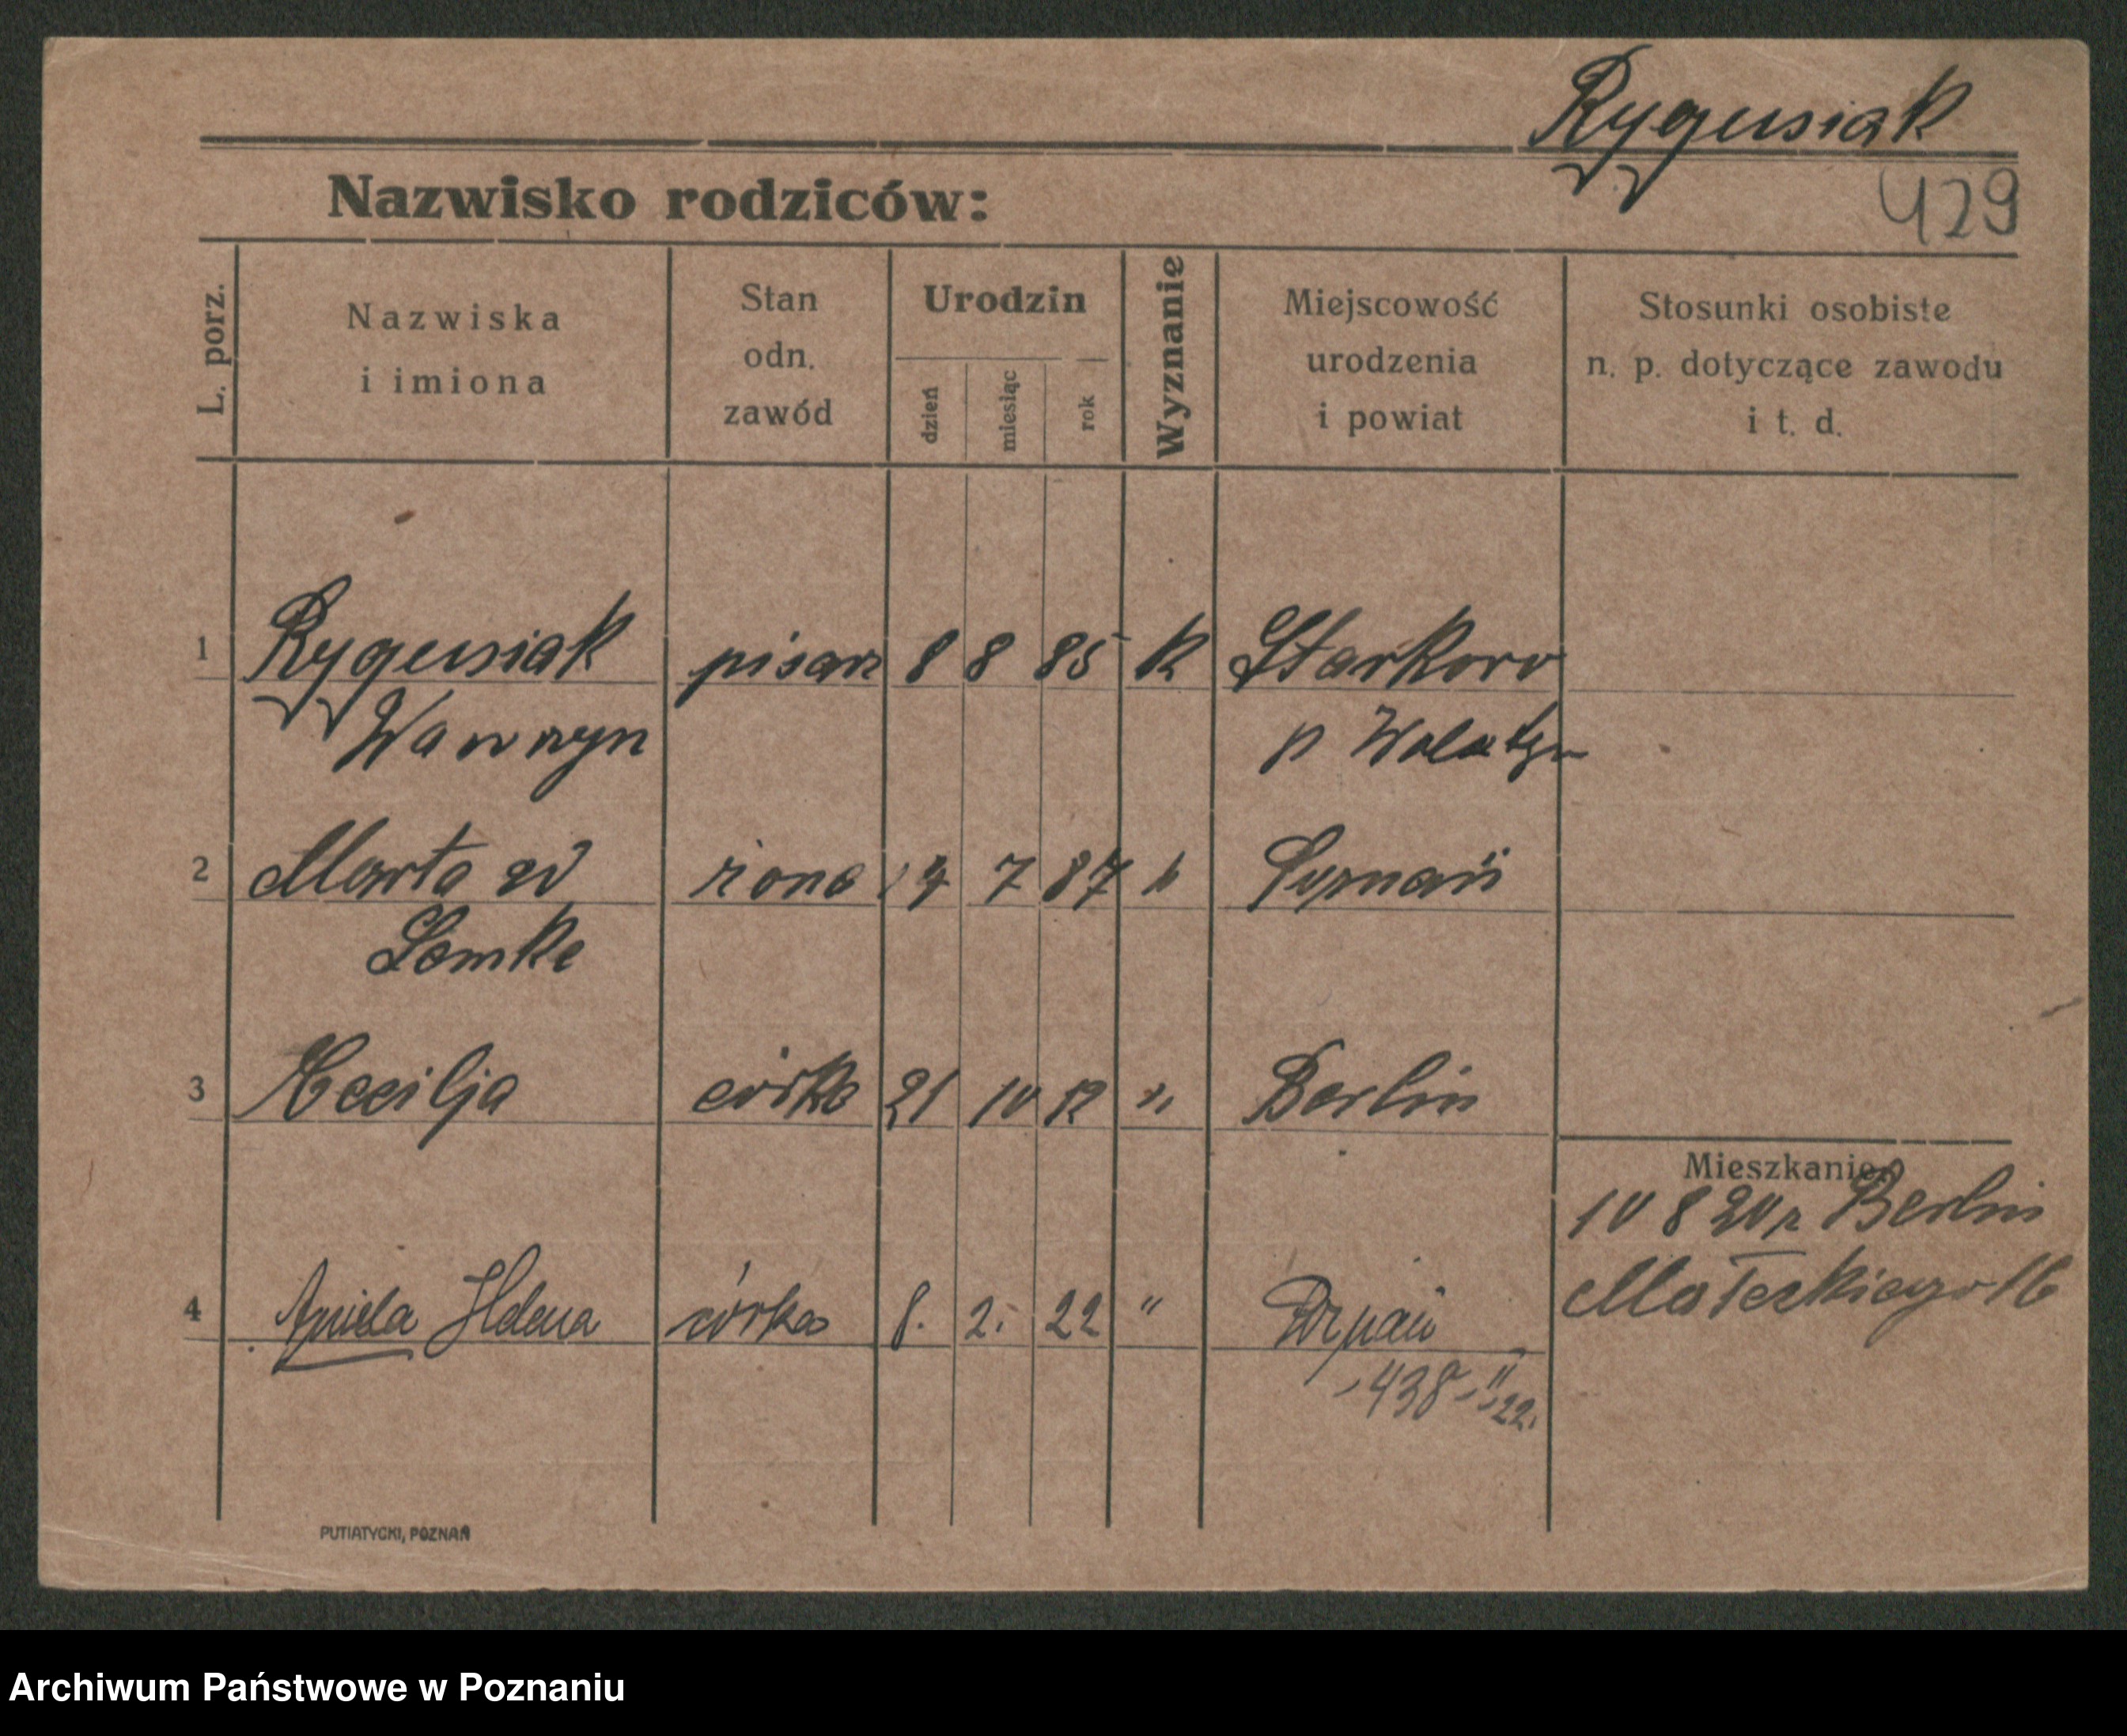 Rygusiak
429
Nazwisko rodziców:
L. porz.
Nazwiska
i imiona
Stan
odn.
zawód
Urodzin
dzień
miesiąc
rok
Wyznanie
Miejscowość
urodzenia
i powiat
Stosunki osobiste
n. p. dotyczące zawodu
i t. d.
1 Rygusiak pisarz 8 8 85 K Starkowo
Wawrzyn p
2 Marta żona 7 87
3 Cecilja córka 21 10 12 " Berlin
Mieszkanie
10 8 20 r Berlin
Małeckiego 16
4 Aniela Helena córka 8. 2. 22 " Poznań
438 22.
PUTIATYCKI, POZNAŃ
Archiwum Państwowe w Poznaniu